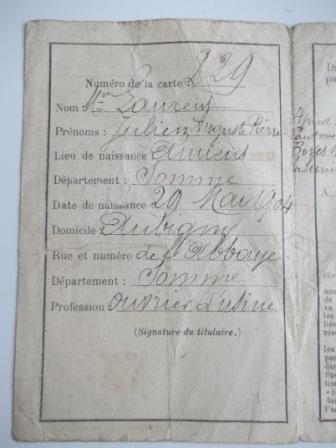 Numéro de la carte : 229
Nom : Mr Laurens
Prénoms : Julien Auguste Pierre
Lieu de naissance Amiens
Département : Somme
Date de naissance : 29 Mai 1904
Domicile Aubigny
Rue et numéro de l'Abbaye
Département : Somme
Profession ouvrier d'usine
(Signature du titulaire.)